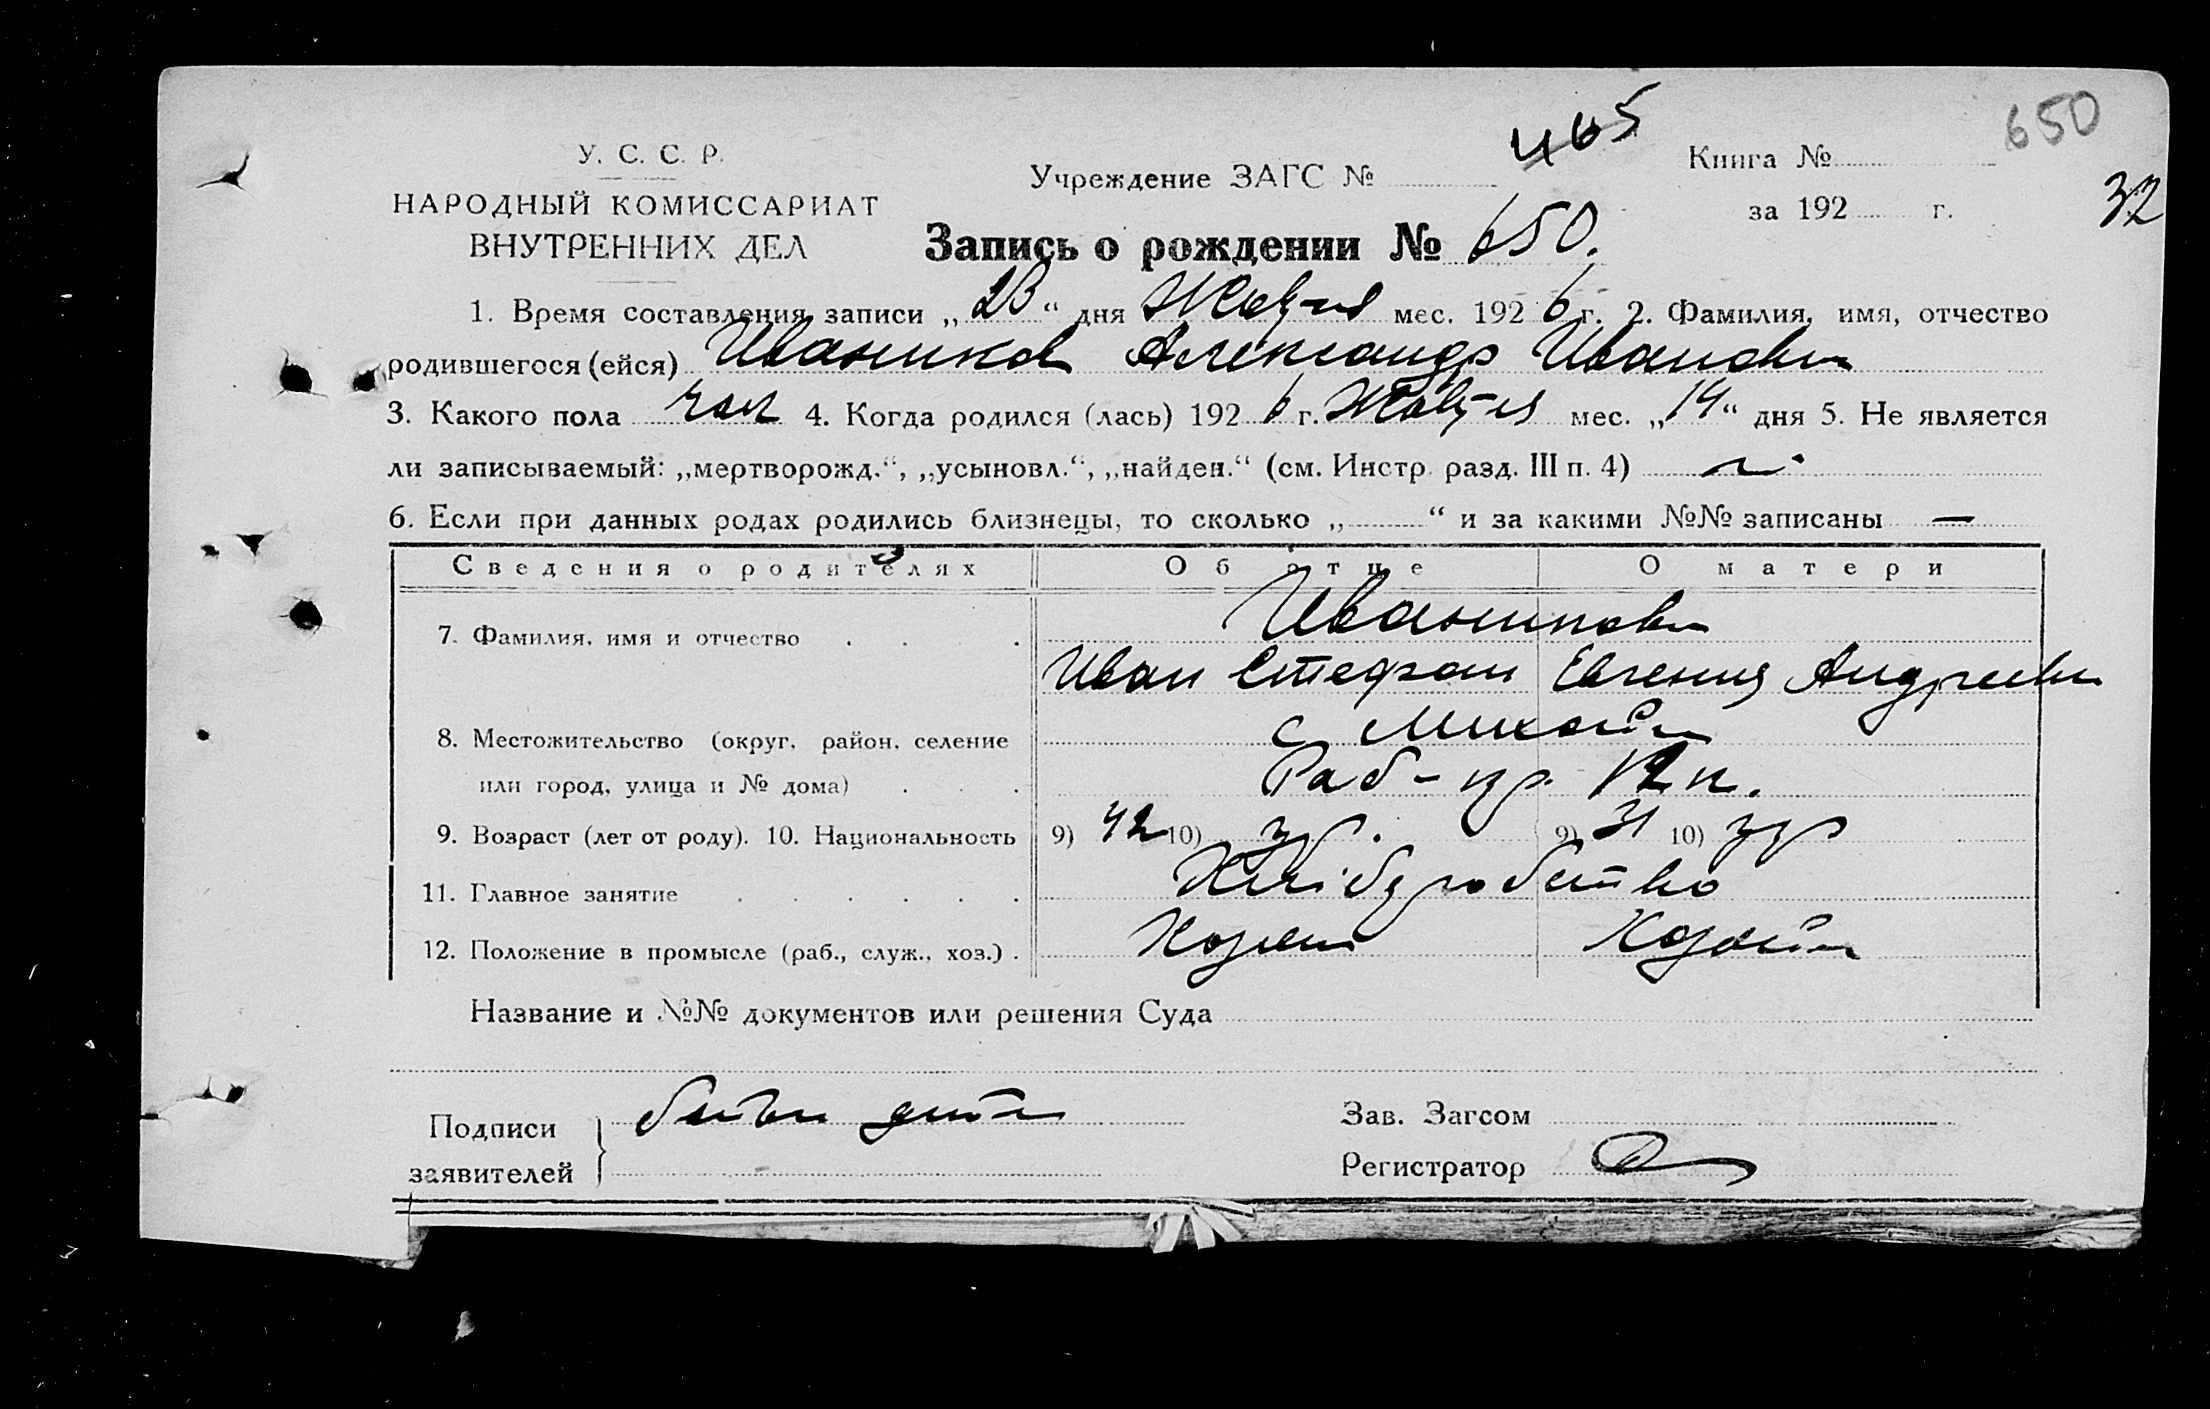 465
650
У. С. С. Р.
Учреждение ЗАГС №
Книга №
НАРОДНЫЙ КОМИССАРИАТ
за 192 г.
32
ВНУТРЕННИХ ДЕЛ
Запись о рождении № 650.
1. Время составления записи „ “ дня мес. 192 6 г. 2. Фамилия, имя, отчество
родившегося (ейся) Иваников Александр Иванович
3. Какого пола чол 4. Когда родился (лась) 192 6 г. мес. „ 14 “ дня 5. Не является
ли записываемый: „мертворожд.“, „усыновл.“, „найден.“ (см. Инстр. разд. III п. 4)
6. Если при данных родах родились близнецы, то сколько „ “ и за какими №№ записаны —
Сведения о родителях
Об отце
О матери
7. Фамилия, имя и отчество . . .
Иваникови
Иван Стефан
Евгения Андреевн
8. Местожительство (округ, район, селение
с
или город, улица и № дома) . . .
9. Возраст (лет от роду). 10. Национальность
9) 42 10)
9) 31 10)
11. Главное занятие . . . . . .
Хліборобство
12. Положение в промысле (раб., служ., хоз.) .
Название и №№ документов или решения Суда
Подписи
заявителей
Зав. Загсом
Регистратор